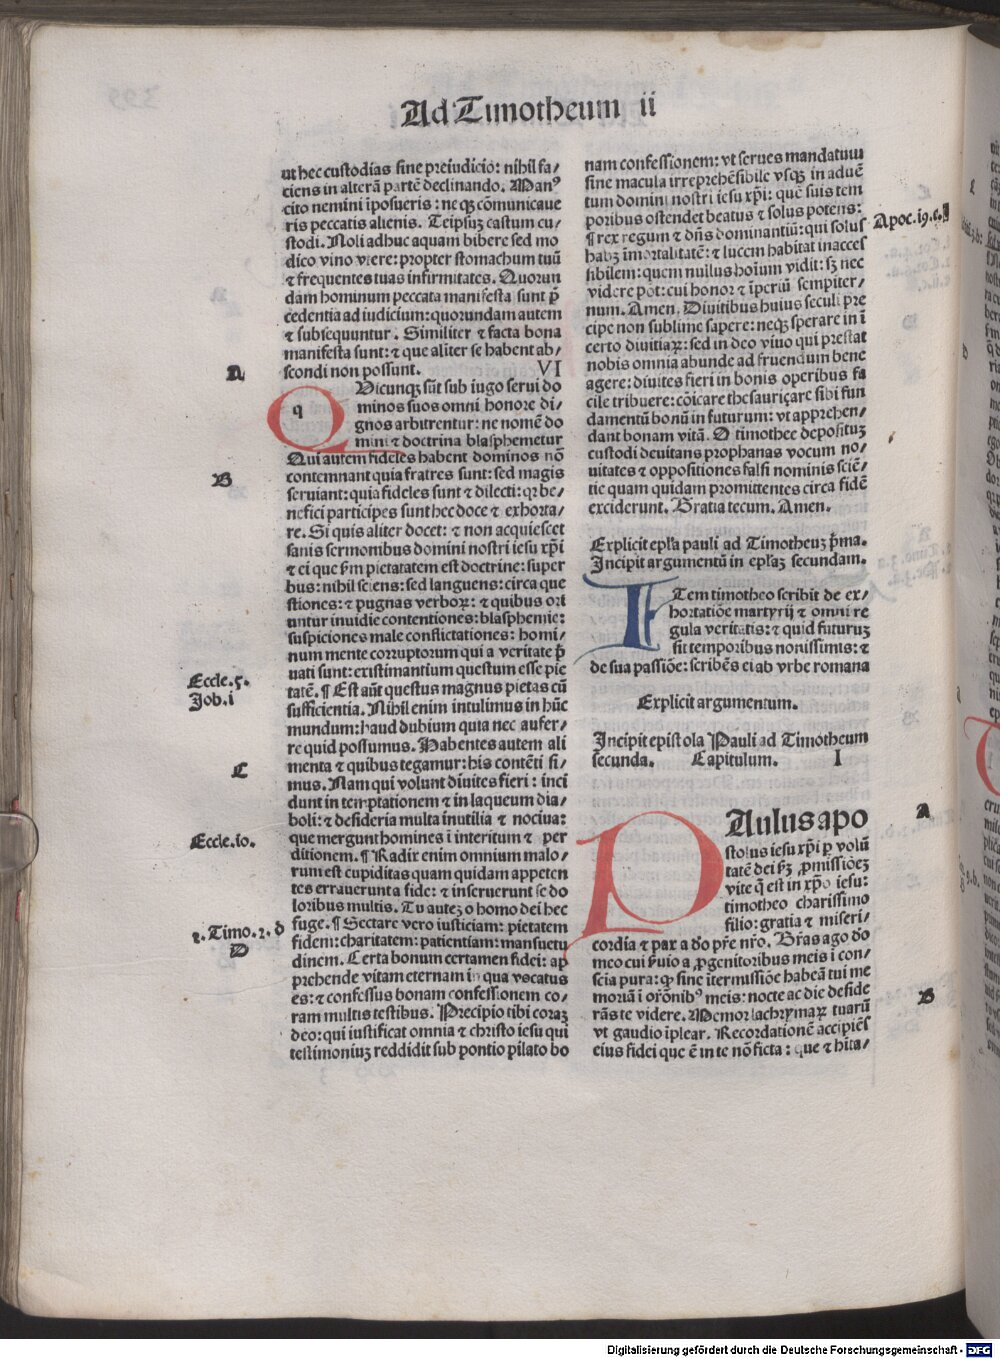 Ad Timotheum ii
ut hec custodias sine preiudicio: nihil fa/
ciens in alterā partē declinando. Manꝰ
cito nemini īposueris: neqꝫ cōmunicaue
ris peccatis alienis. Teipsuꝫ castum cu/
stodi. Noli adhuc aquam bibere sed mo
dico vino vtere: propter stomachum tuū
⁊ frequentes tuas infirmitates. Quorun
dam hominum peccata manifesta sunt p̄
cedentia ad iudicium: quorundam autem
⁊ subsequuntur. Similiter ⁊ facta bona
manifesta sunt: ⁊ que aliter se habent ab/
scondi non possunt. VI
A
q
Vicunqꝫ sūt sub iugo serui do
minos suos omni honore di/
gnos arbitrentur: ne nomē do
mini ⁊ doctrina blasphemetur
Qui autem fideles habent dominos nō
B
contemnant quia fratres sunt: sed magis
seruiant: quia fideles sunt ⁊ dilecti: qꝛ be/
nefici participes sunt hec doce ⁊ exhorta/
re. Si quis aliter docet: ⁊ non acquiescet
sanis sermonibus domini nostri iesu xp̄i
⁊ ei que ẜm pietatatem est doctrine: super
bus: nihil sciens: sed languens: circa que
stiones: ⁊ pugnas verboꝝ: ⁊ quibus ori
untur inuidie contentiones: blasphemie:
suspiciones male conflictationes: homi/
num mente corruptorum qui a veritate p̄
uati sunt: existimantium questum esse pie
Eccle.5.
tatē. ¶ Est aūt questus magnus pietas cū
Job.i
sufficientia. Nihil enim intulimus in hūc
mundum: haud dubium quia nec aufer/
re quid possumus. Habentes autem ali
C
menta ⁊ quibus tegamur: his contēti si/
mus. Nam qui volunt diuites fieri: inci
dunt in temptationem ⁊ in laqueum dia/
boli: ⁊ desideria multa inutilia ⁊ nociua:
Eccle.io.
que mergunt homines ī interitum ⁊ per
ditionem. ¶ Radix enim omnium malo/
rum est cupiditas quam quidam appeten
tes errauerunt a fide: ⁊ inseruerunt se do
loribus multis. Tu auteꝫ o homo dei hec
fuge. ¶ Sectare vero iusticiam: pietatem
2.Timo.2.d
D
fidem: charitatem: patientiam: mansuetu
dinem. Certa bonum certamen fidei: ap
prehende vitam eternam in qua vocatus
es: ⁊ confessus bonam confessionem co/
ram multis testibus. Precipio tibi coraꝫ
deo: qui iustificat omnia ⁊ christo iesu qui
testimoniuꝫ reddidit sub pontio pilato bo
nam confessionem: vt serues mandatum
sine macula irreprehēsibile vsqꝫ in aduē
tum domini nostri iesu xp̄i: quē suis tem
poribus ostendet beatus ⁊ solus potens:
Apoc.i9.c.
¶ rex regum ⁊ dn̄s dominantiū: qui solus
habꝫ īmortalitatē: ⁊ lucem habitat inacces
sibilem: quem nullus hoīum vidit: sꝫ nec
videre pot: cui honor ⁊ īperiū sempiter/
num. Amen. Diuitibus huius seculi pre
cipe non sublime sapere: neqꝫ sperare in ī
certo diuitiaꝝ: sed in deo viuo qui prestat
nobis omnia abunde ad fruendum bene
agere: diuites fieri in bonis operibus fa
cile tribuere: cōicare thesauriçare sibi fun
damentū bonū in futurum: vt apprehen/
dant bonam vitā. O timothee deposituꝫ
custodi deuitans prophanas vocum no/
uitates ⁊ oppositiones falsi nominis sciē/
tie quam quidam promittentes circa fidē
exciderunt. Gratia tecum. Amen.
Explicit epl̄a pauli ad Timotheuꝫ p̄ma.
Incipit argumentū in epl̄aꝫ secundam.
ITem timotheo scribit de ex/
hortatiōe martyrij ⁊ omni re
gula veritatis: ⁊ quid futuruꝫ
sit temporibus nouissimis: ⁊
de sua passiōe: scribēs ei ab vrbe romana
Explicit argumentum.
Incipit epistola Pauli ad Timotheum
secunda. Capitulum. I
A
PAulus apo
stolus iesu xp̄i ꝑ volū
tatē dei ẜꝫ ꝓmissiōeꝫ
vite q̄ est in xp̄o iesu:
timotheo charissimo
filio: gratia ⁊ miseri/
cordia ⁊ pax a dō pr̄e nr̄o. Gr̄as ago dō
meo cui ẜuio a ꝓgenitoribus meis ī con/
scia pura: ꝙ sine ītermissiōe habeā tui me
moriā ī or̄onibꝰ meis: nocte ac die deside
B
rās te videre. Memor lachrymaꝝ tuarū
vt gaudio īplear. Recordationē accipiēs
eius fidei que ē in te nō ficta: que ⁊ hita/
Digitalisierung gefördert durch die Deutsche Forschungsgemeinschaft - DFG